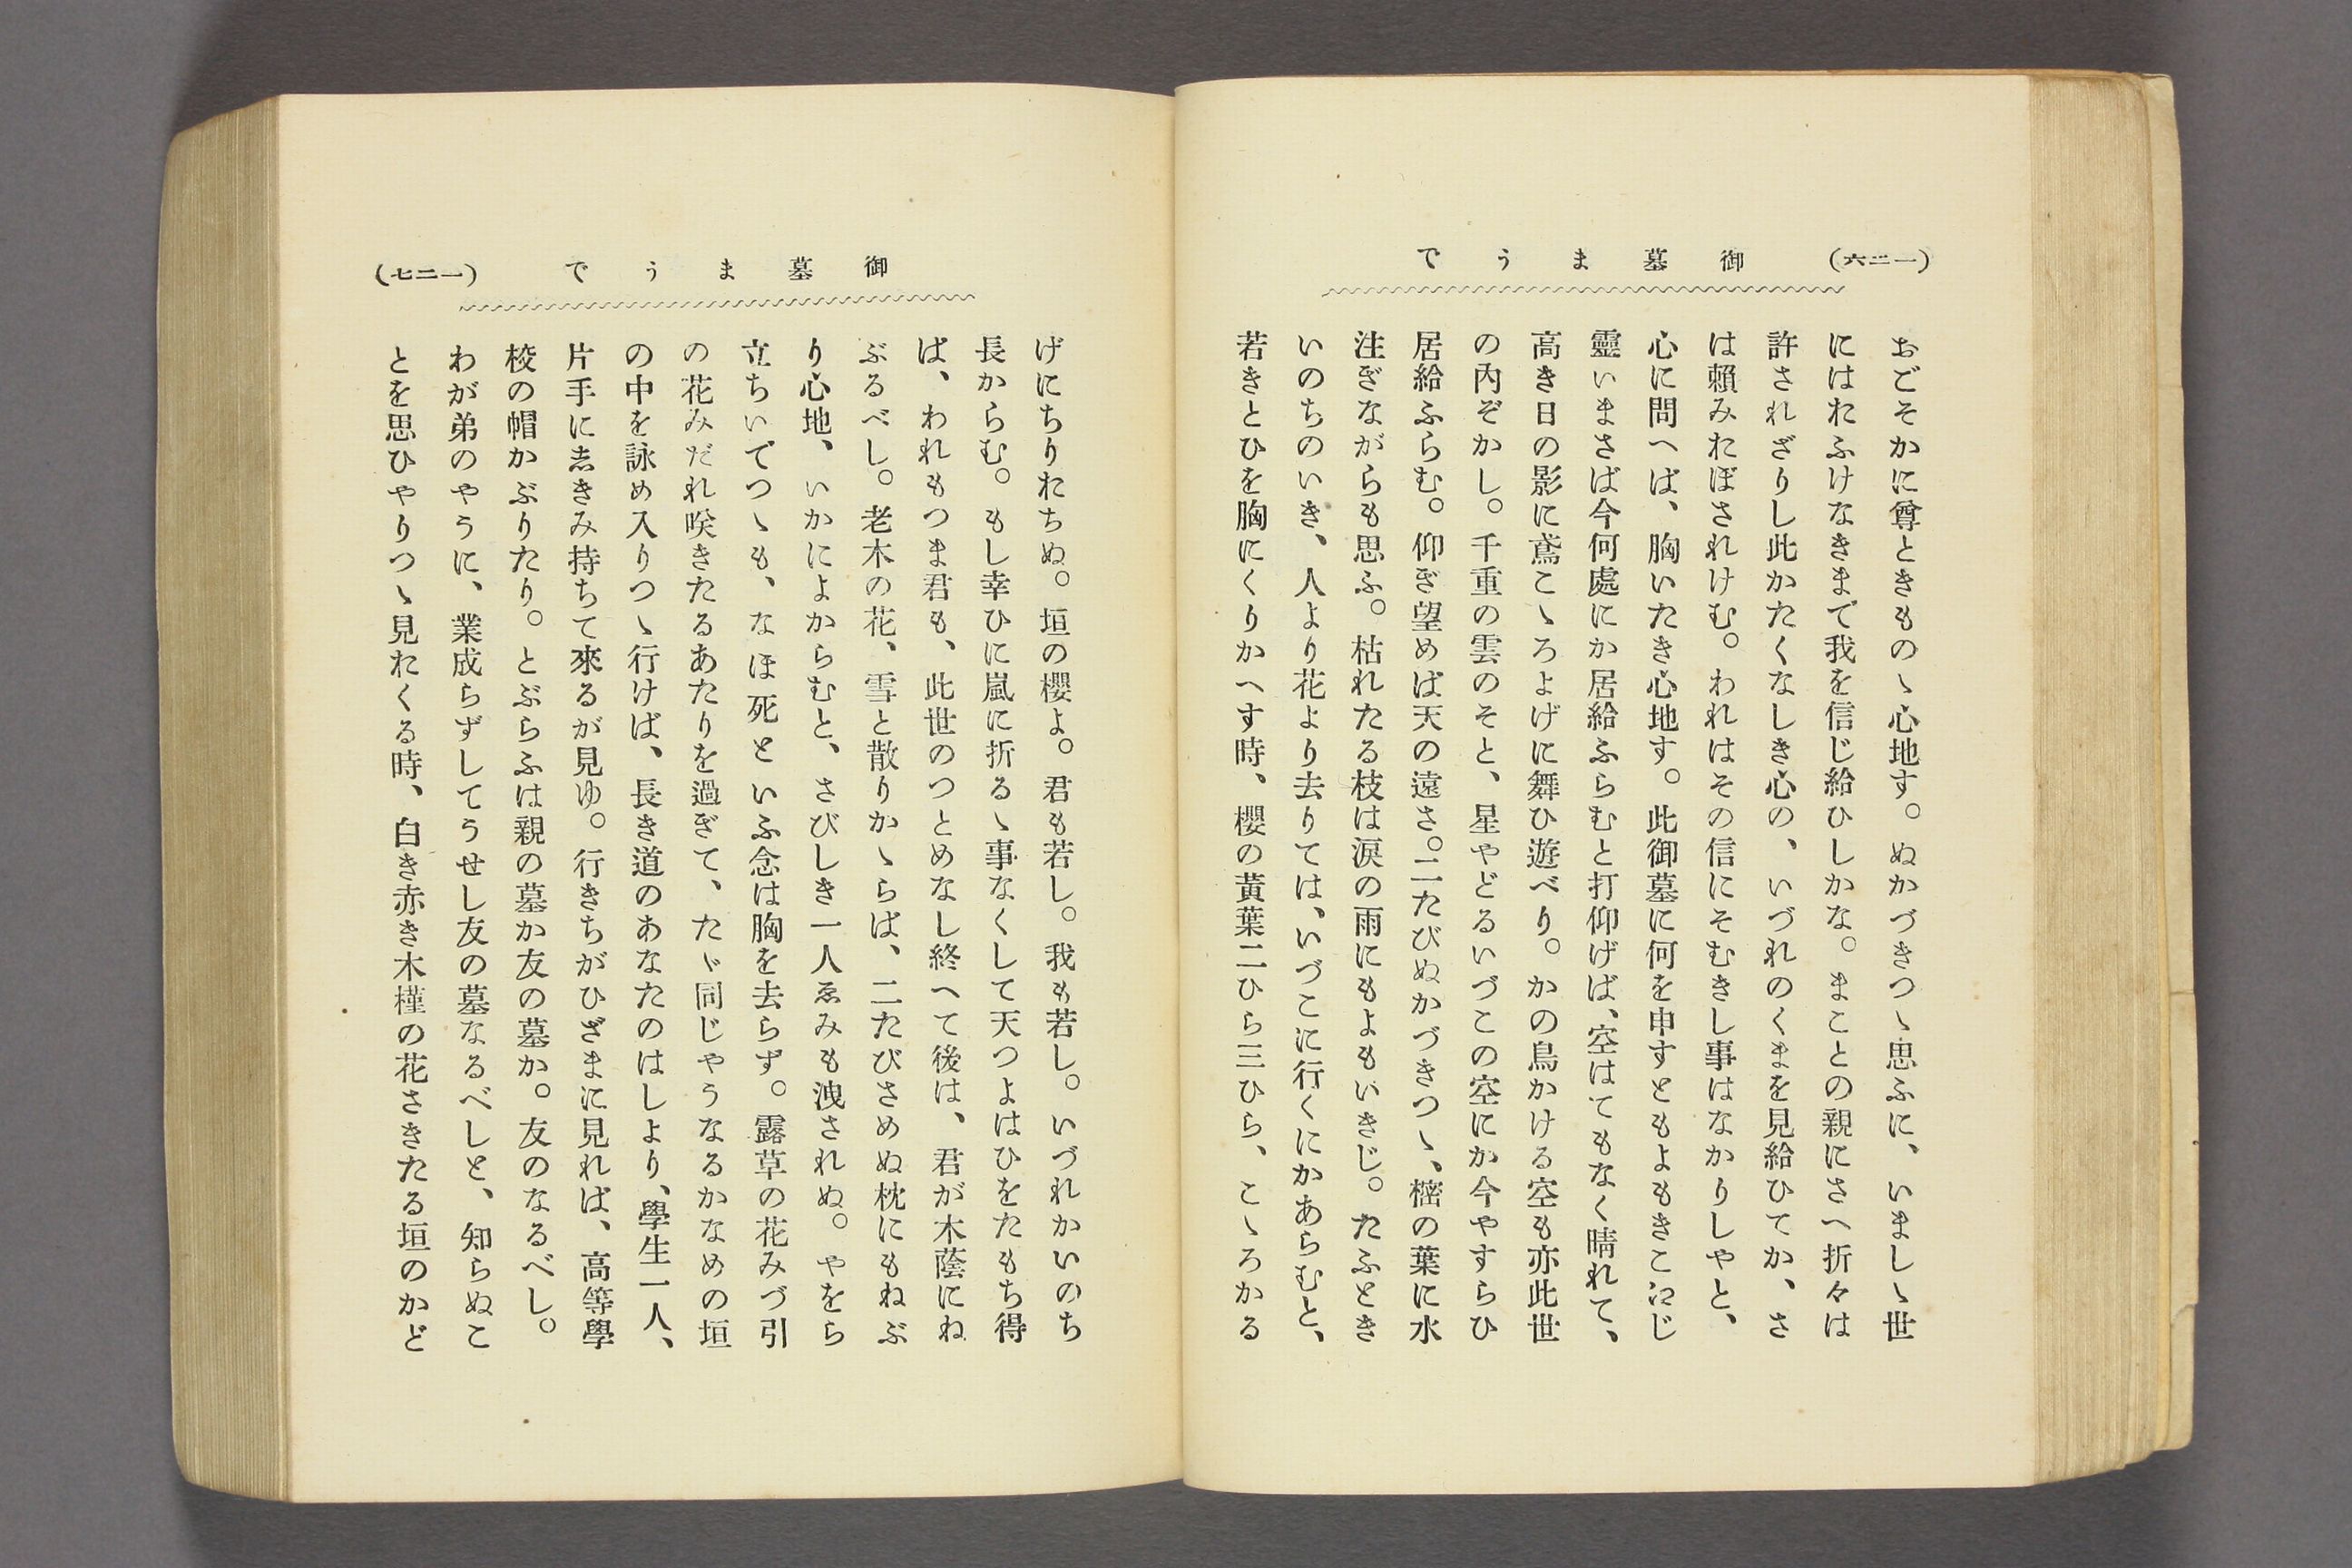 (一二六)
御墓まうで
おごそかに尊ときものゝ心地す。ぬかづきつゝ思ふに、いましゝ世
にはおふけなきまで我を信じ給ひしかな。まことの親にさへ折々は
許されざりし此かたくなしき心の、いづれのくまを見給ひてか、さ
は頼みおぼされけむ。われはその信にそむきし事はなかりしやと、
心に問へば、胸いたき心地す。此御墓に何を申すともよもきこ江じ
靈いまさば今何處にか居給ふらむと打仰げば、空はてもなく晴れて、
高き日の影に鳶こゝろよげに舞ひ遊べり。かの鳥かける空も亦此世
の内ぞかし。千重の雲のそと、星やどるいづこの空にか今やすらひ
居給ふらむ。仰ぎ望めば天の遠さ。二たびぬかづきつゝ、樒の葉に水
注ぎながらも思ふ。枯れたる枝は涙の雨にもよもいきじ。たふとき
いのちのいき、人より花より去りては、いづこに行くにかあらむと、
若きとひを胸にくりかへす時、櫻の黄葉二ひら三ひら、こゝろかる
御墓まうで
(一二七)
げにちりおちぬ。垣の櫻よ。君も若し。我も若し。いづれかいのち
長からむ。もし幸ひに嵐に折るゝ事なくして天つよはひをたもち得
ば、われもつま君も、此世のつとめなし終へて後は、君が木蔭にね
ぶるべし。老木の花、雪と散りかゝらば、二たびさめぬ枕にもねぶ
り心地、いかによからむと、さびしき一人ゑみも洩されぬ。やをら
立ちいでつゝも、なほ死といふ念は胸を去らず。露草の花みづ引
の花みだれ咲きたるあたりを過ぎて、たゞ同じやうなるかなめの垣
の中を詠め入りつゝ行けば、長き道のあなたのはしより、學生一人、
片手に志きみ持ちて來るが見ゆ。行きちがひざまに見れば、高等學
校の帽かぶりたり。とぶらふは親の墓か友の墓か。友のなるべし。
わが弟のやうに、業成らずしてうせし友の墓なるべしと、知らぬこ
とを思ひやりつゝ見おくる時、白き赤き木槿の花さきたる垣のかど